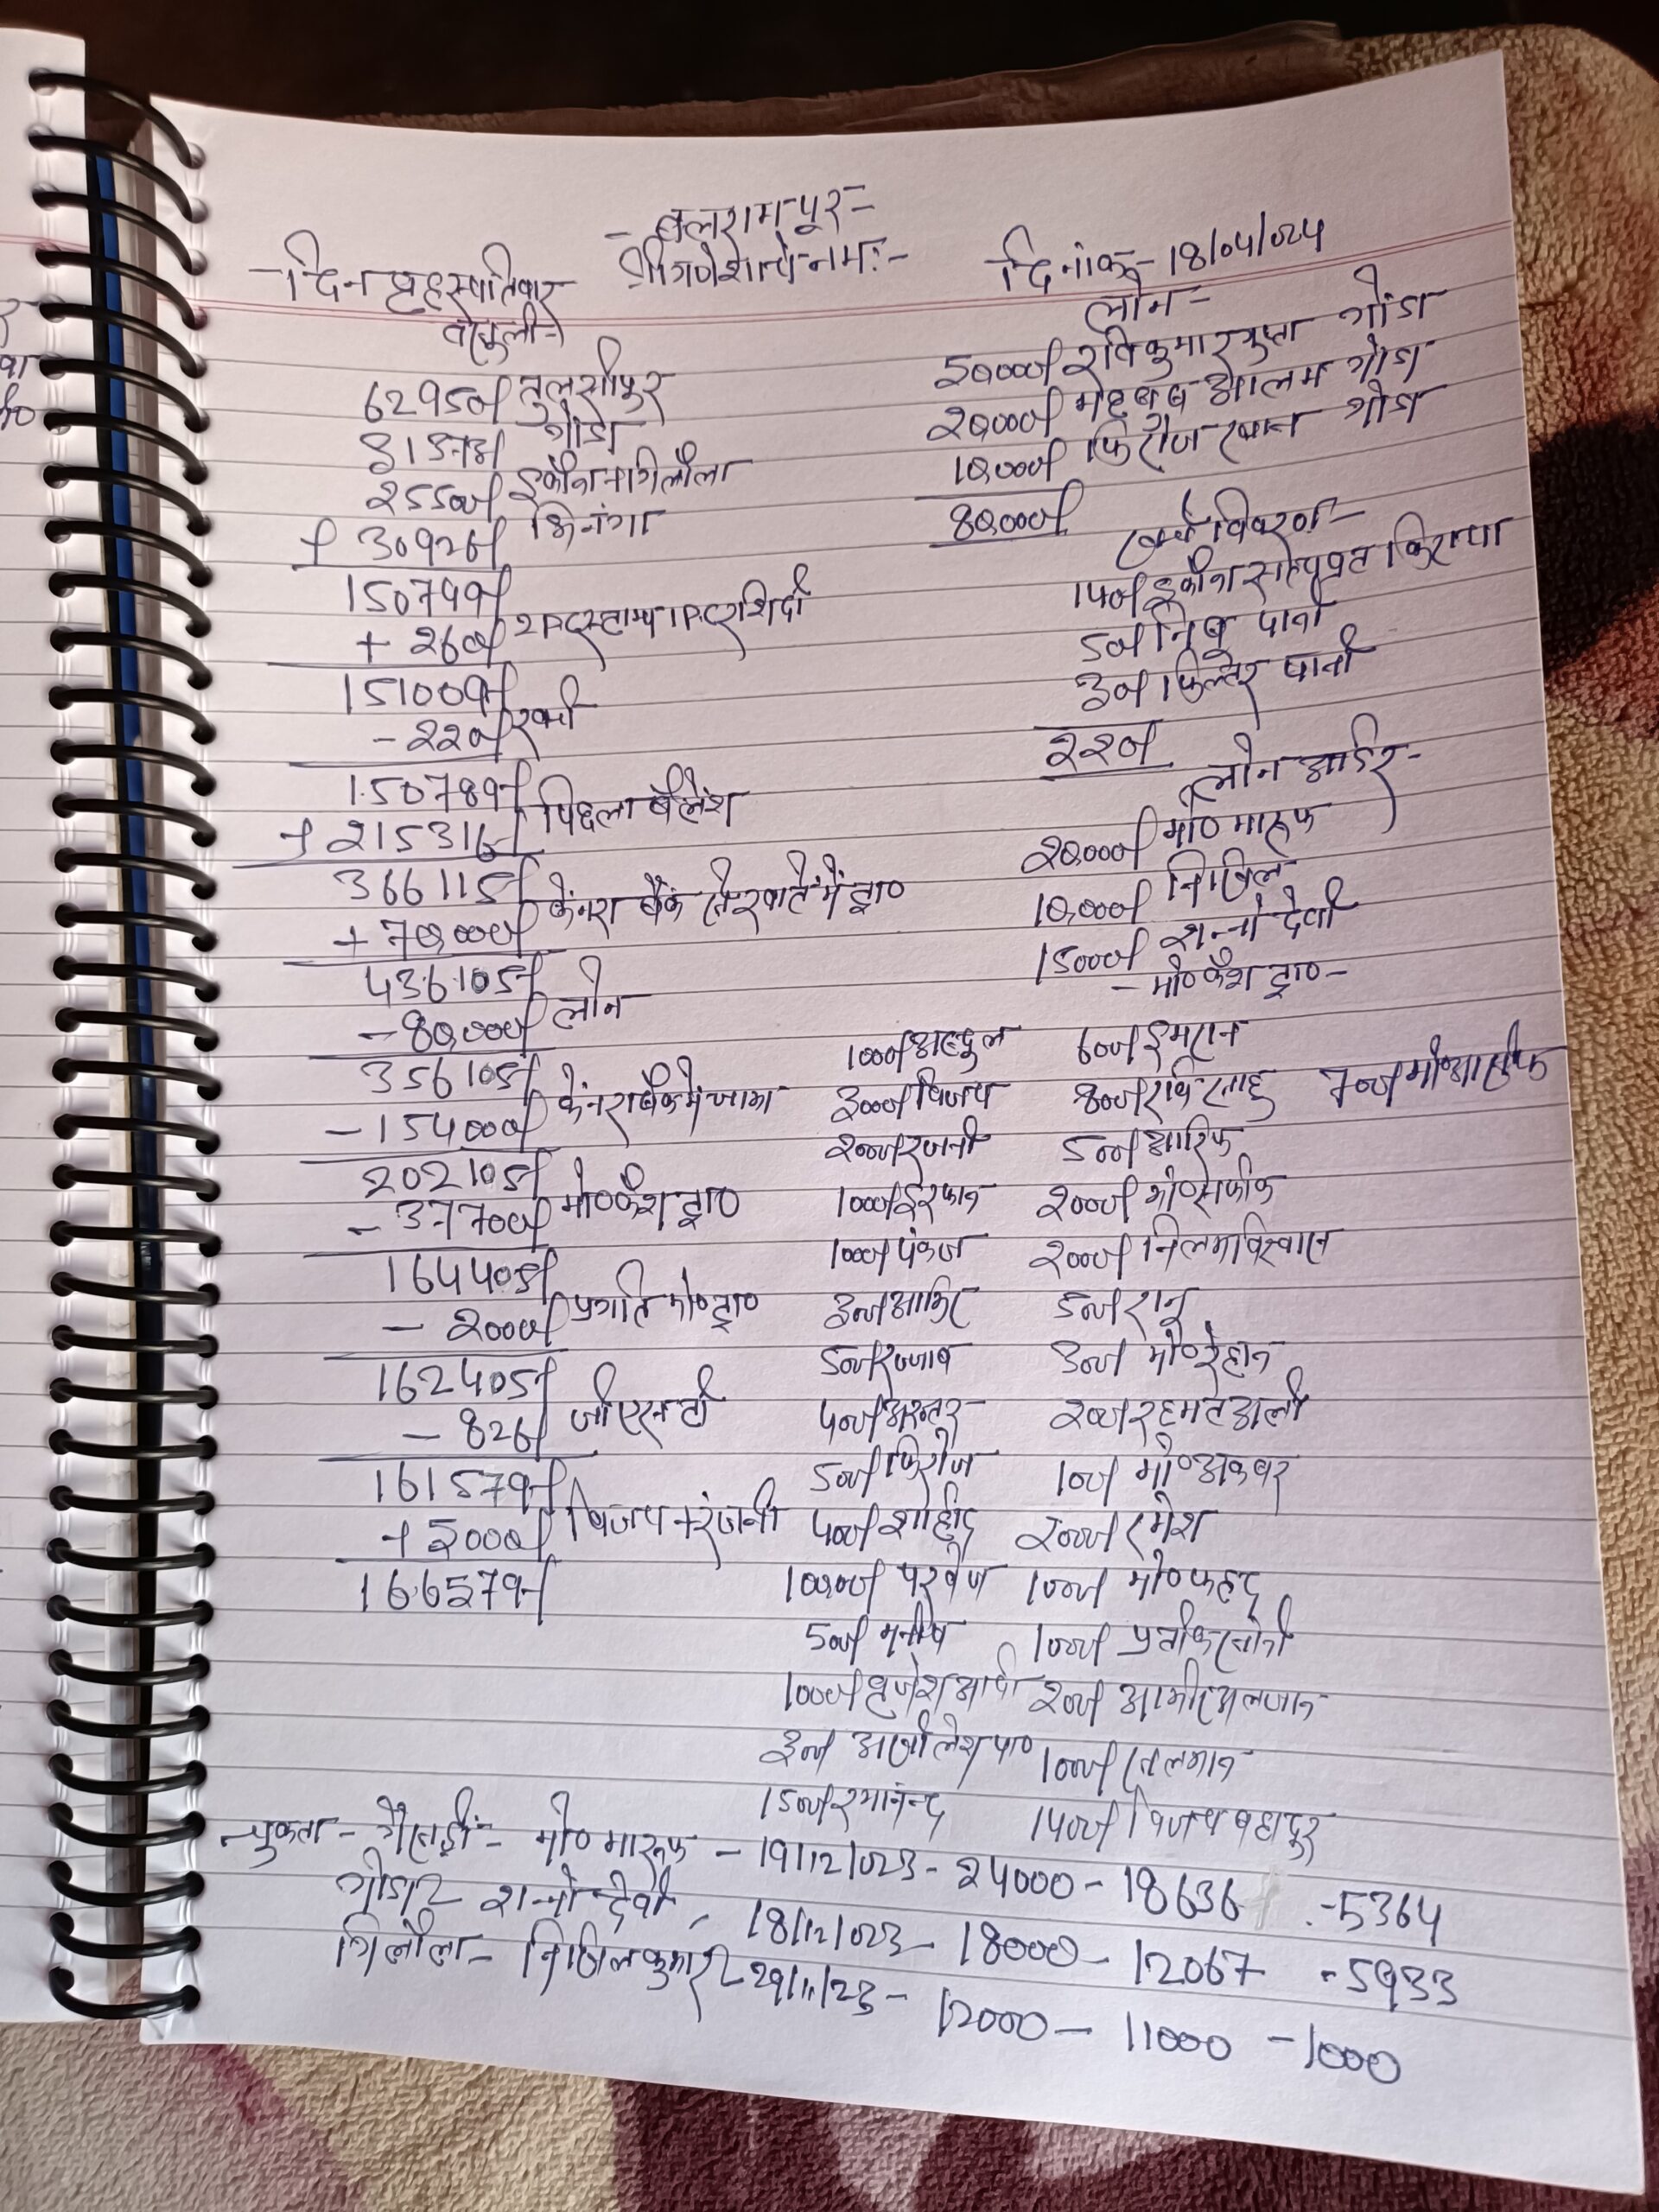 - बलरामपुर -
- दिन बृहस्पतिवार श्री गणेशाये नमः - दिनांक - 18/04/024
वसुली -
62950/ तुलसीपुर
31573/ गोंडा
25500/ इकौना + गिलौला
+ 30926/ भिनंगा
150949/
+ 260/
151009/
- 220/ खर्चा
150789/
+ 215316/ पिछला बैलेंश
366115/
+ 70,000/ केंनरा बैंक से खाते में द्वा०
436105/
- 80,000/ लोन
356105/
- 154000/ केंनरा बैंक में जमा
202105/
- 37700/ मो० कैश द्वा०
164405/
- 2000/ प्रगति मो० द्वा०
162405/
- 826/ जीएसटी
161579/
+ 5000/ विजय + रंजनी
166579/
लोन -
50,000/ रविकुमार गुप्ता गोंडा
20,000/ मेहबुब आलम गोंडा
10,000/ फिरोज खान गोंडा
80,000/
खर्च विवरण -
140/ इकौना किराया
50/ निबु पानी
30/ फिल्टर पानी
220/
लोन आर्डर -
20,000/ मो० मारूफ
10,000/ निखिल
15000/ शन्नो देवी
- मो० कैश द्वा० -
1000/ अब्दुल 600/ इमरान
3000/ विजय 800/ रवि साहु 700/ मो० आसीफ
2000/ रजनी 500/ आरिफ
1000/ इरफान 2000/ मो० सफीक
1000/ पंकज 2000/ निलम विस्वास
300/ आमिर 500/ रानू
500/ रज्जाब 300/ मो० रेहान
400/ अख्तर 200/ रहमत अली
500/ फिरोज 100/ मो० अकबर
400/ शाहीद 2000/ रमेश
10,000/ परवेज 1000/ मो० फहद
500/ मनीष 1000/ प्रतीक सोनी
1000/ बृजेश आर्या 200/ आमीर अलजान
300/ अखीलेश पा० 1000/ सलमान
1500/ रमानन्द 1400/ विजय बहादुर
चुकता - गैसड़ी - मो० मारूफ - 19/12/023 - 24000 - 18636 - 5364
गोंडा - शन्नो देवी, 18/12/023 - 18000 - 12067 - 5933
गिलौला - निखिल कुमार - 29/11/23 - 12000 - 11000 - 1000